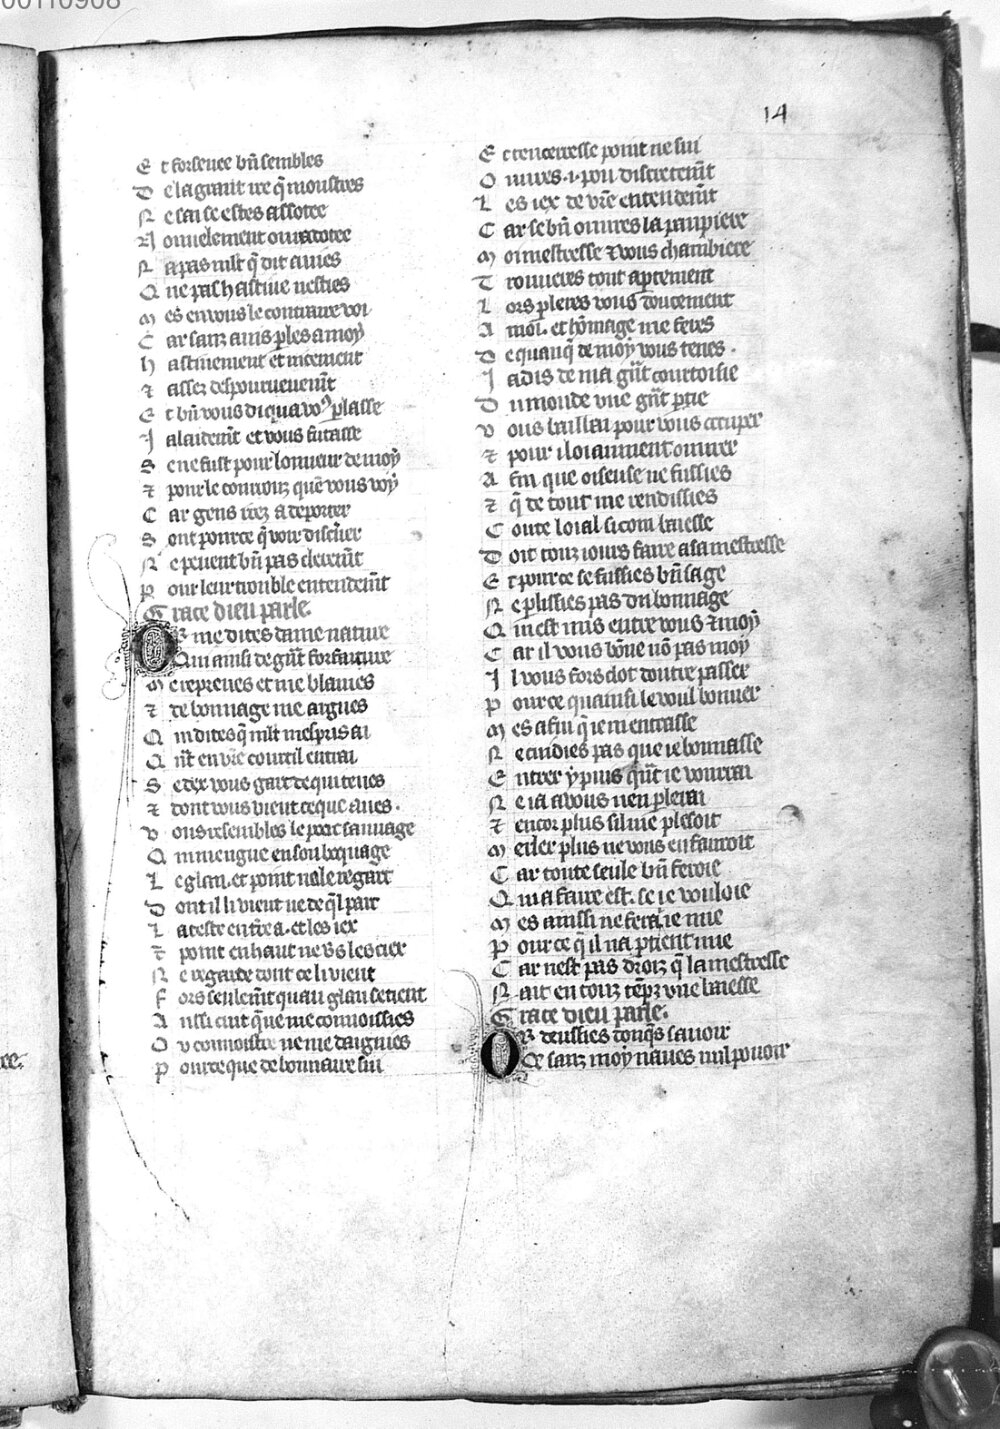 00110908
14
E t forsenee bn̄ sembles
D e la grant ire q̄ moustres
N e sai se estes assotee
N ouuelement ou radotee
N a pas mlt q̄ dit auies
Q ue pas hastiue nesties
M es en vous le contraire voi
C ar sanz auis ꝑles a moy
h astiuement et nicement
⁊ assez despourueuem̄t
E t bn̄ vous di qua voꝰ ꝑlasse
J a laidem̄t et vous futasse
S e ne fust pour lonneur de moy
⁊ pour le courrouz que en vous voy
C ar gens irez a deporter
S ont pour ce q̄ voir discrner
N e peuent bn̄ pas clerem̄t
P our leur trouble entendem̄t
G race dieu parle.
O R me dites dame nature
Qui ainsi de gn̄t forfaiture
M e reprenes et me blames
⁊ de bonnage me argues
Q ui dites q̄ mlt mespris ai
Q n̄t en vr̄e courtil entrai
S e dex vous gart de qui tenes
⁊ dont vous vient ce que aues.
V ous resembles le porc sauuage
Q ui mengue en son boquage
L e glan. et point na le regart
D ont il li vient ne de q̄l part
L a teste en tr̄e a. et les iex
⁊ point en haut ne vs̄ les ciex
N e regarde dont ce li vient
F ors seulem̄t quau glan se tient
A ussi cuit q̄ ne me connoissies
O v connoistre ne me daignies
P our ce que debonnaire sui
E t tenceresse point ne sui
O uures .i. pou discretem̄t
L es iex de vr̄e entendem̄t
C ar se bn̄ ouures la paupiere
M oi mestresse ⁊ vous chambiere
T rouueres tout aꝑtement
L ors ꝑleres vous doucement
A moi. et hōmage me feres
D e quanq̄ de moy vous tenes.
J adis de ma gn̄t courtoisie
D u monde vne gn̄t ꝑtie
V ous baillai pour vous occuper
⁊ pour i loiaument ouurer
A fin que oiseuse ne fussies
⁊ q̄ de tout me rendissies
C onte loial si com baiesse
D oit touz iours faire a sa mestresse
E t pour ce se fussies bn̄ sage
N e ꝑlissies pas du bonnage
Q ui est mis entre vous ⁊ moy
C ar il vous bōne nō pas moy
J l vous fors clot doutre passer
P our ce quainsi le voul bonner
M es afin q̄ ie ni entrasse
N e cuidies pas que ie bonnasse
E ntrer y puis qn̄t ie vourrai
N e ia a vous nen ꝑlerai
⁊ encor plus sil me plesoit
M eller plus ne vous en fauroit
C ar toute seule bn̄ feroie
Q ui a faire est. se ie vouloie
M es ainssi ne ferai ie mie
P our ce q̄ il na ꝑtient mie
C ar nest pas droiz q̄ la mestresse
N ait en touz tēps vne baiesse
G race dieu parle.
O R deussies donq̄s sauoir
Qe sanz moy naues nul pouoir